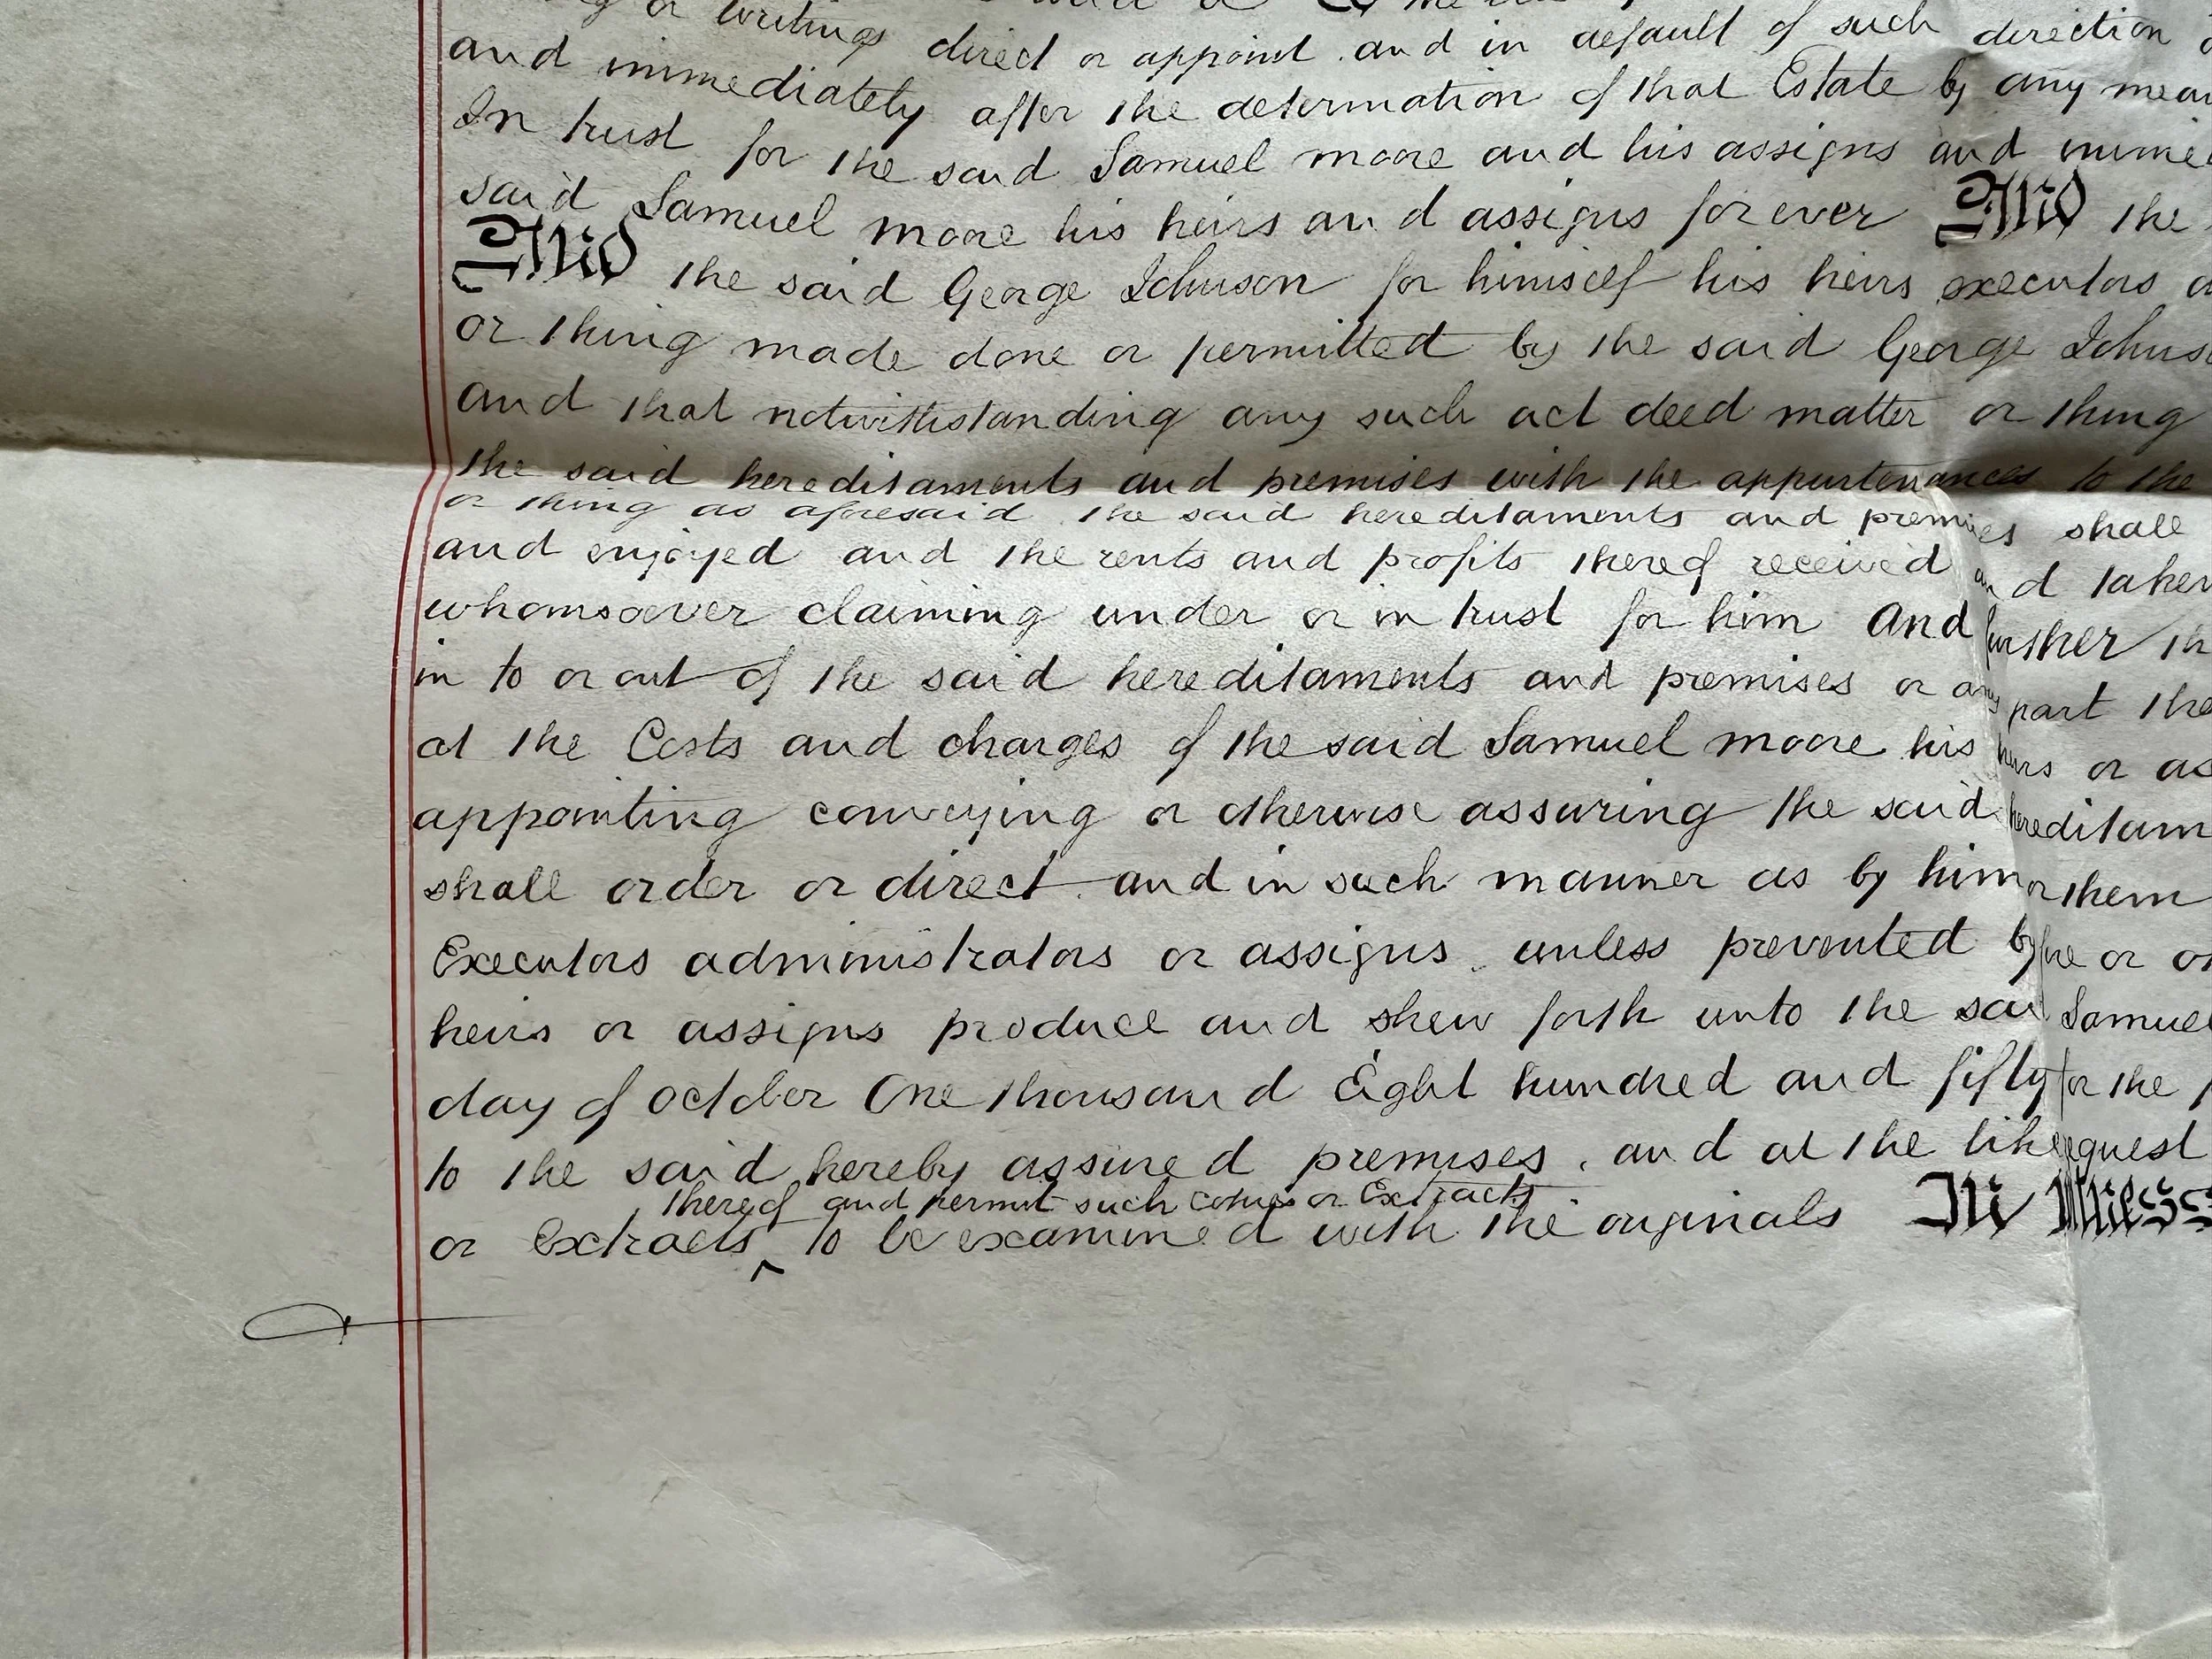 or writings direct or appoint and in default of such direction
and immediately after the determination of that Estate by any
In trust for the said Samuel Moore and his assigns and
said Samuel Moore his heirs and assigns for ever And the
And the said George Johnson for himself his heirs executors
or thing made done or permitted by the said George
and that notwithstanding any such act deed matter or thing
the said hereditaments and premises with the appurtenances to the
or thing as aforesaid the said hereditaments and premises shall
and enjoyed and the rents and profits thereof received and taken
whomsoever claiming under or in trust for him And further
in to or out of the said hereditaments and premises or any part
at the Costs and charges of the said Samuel Moore his heirs or
appointing conveying or otherwise assuring the said
shall order or direct and in such manner as by him or them
Executors administrators or assigns unless prevented by fire or
heirs or assigns produce and shew forth unto the Samuel
day of October One thousand Eight hundred and fifty for the
to the said hereby assured premises . and at the like request
thereof and permit such copies or Extracts
or Extracts ^ to be examined with the originals In